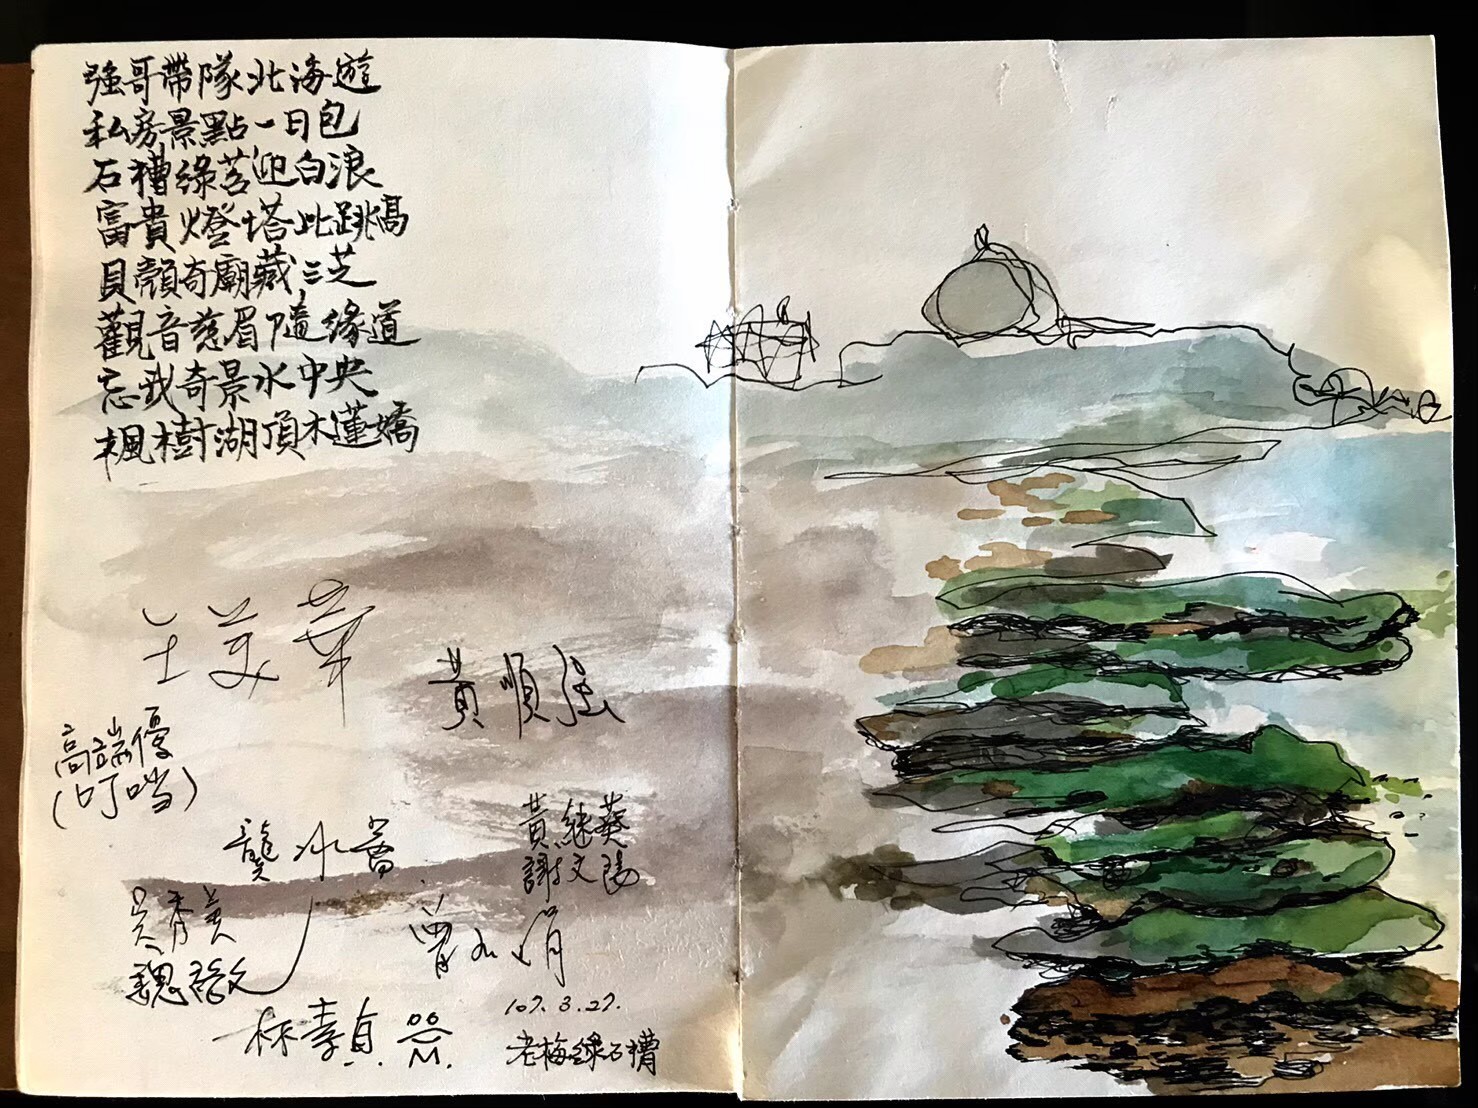 強哥帶隊北海遊
私房景點一日包
石槽綠苔迎白浪
富貴燈塔比跳高
貝顏奇廟藏三芝
觀音慈眉隨緣道
忘我奇景水中央
楓樹湖頂木蓮嬌
王美華
黃順強
高端優
(叮噹)
黃継葵
龔水會
謝文陽
吳秀美
魏啟文
林素貞
107.3.27.
老梅綠石槽